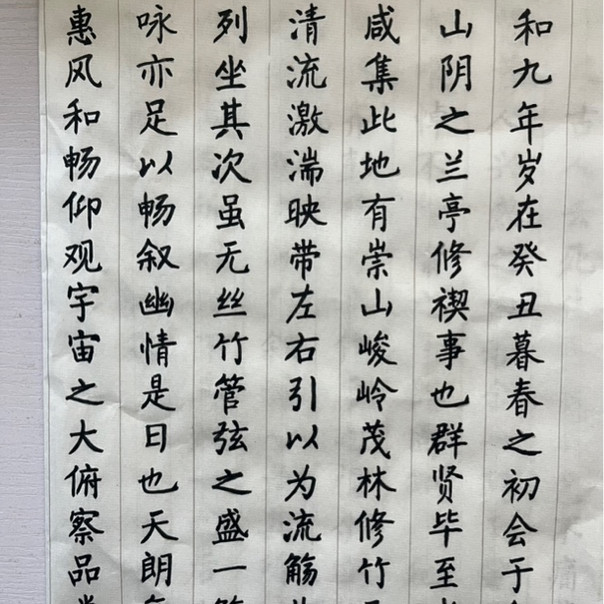 和九年岁在癸丑暮春之初会于
山阴之兰亭修禊事也群贤毕至
咸集此地有崇山峻岭茂林修竹
清流激湍映带左右引以为流觞
列坐其次虽无丝竹管弦之盛一
咏亦足以畅叙幽情是日也天朗
惠风和畅仰观宇宙之大俯察品